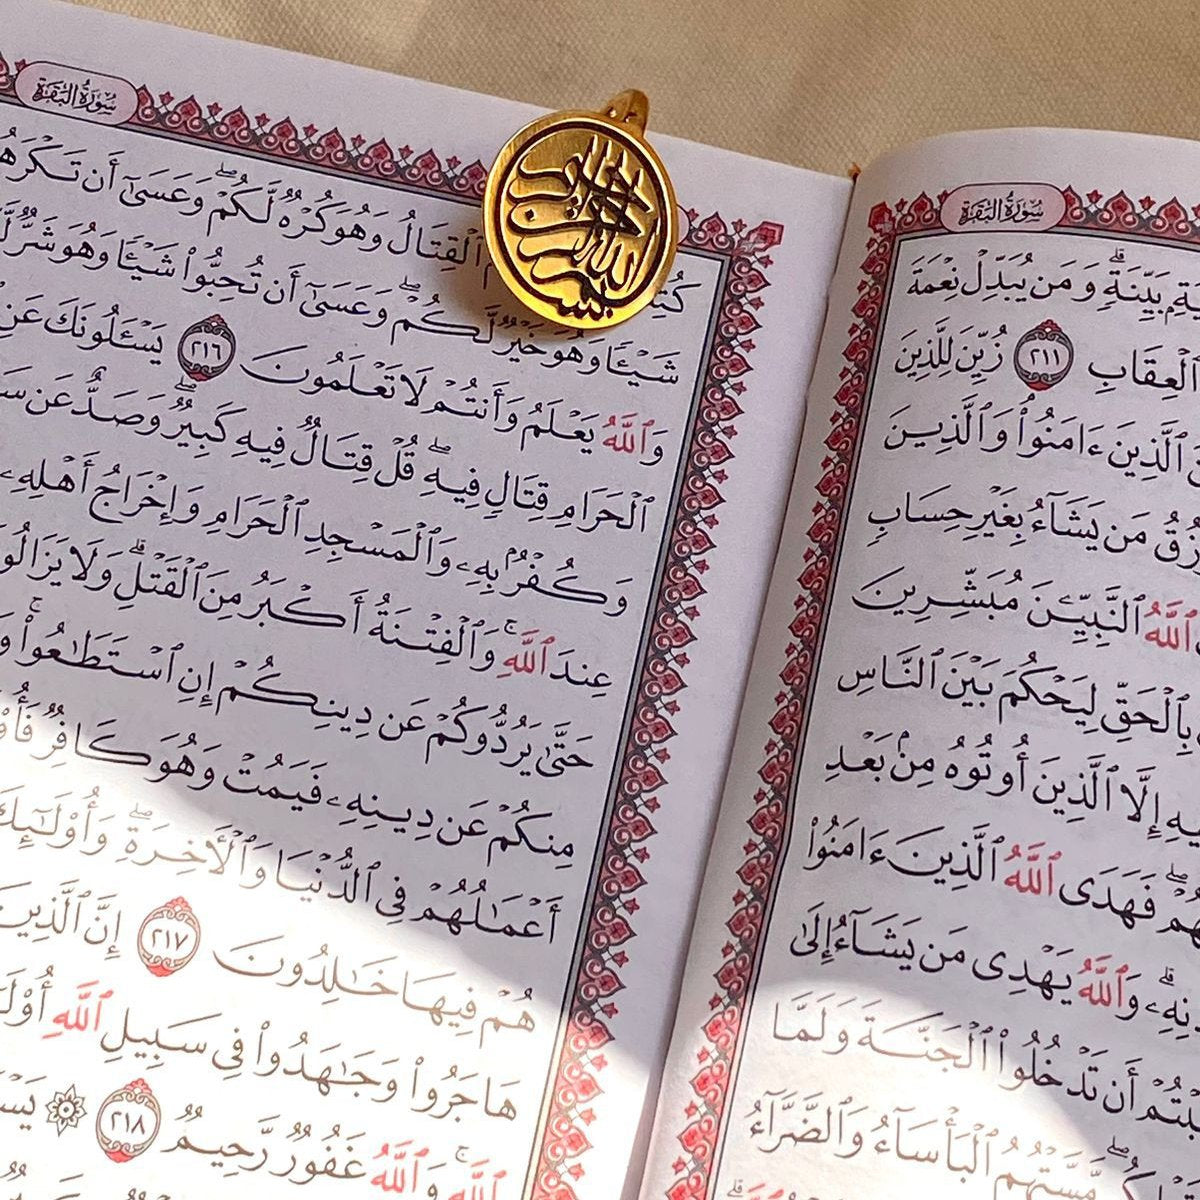 سُورَةُ البَقَرَةِ
بَيِّنَةٍ ۗ وَمَن يُبَدِّلْ نِعْمَةَ
ٱلْعِقَابِ ٢١١ زُيِّنَ لِلَّذِينَ
ٱلَّذِينَ ءَامَنُوا۟ ۘ وَٱلَّذِينَ
مَن يَشَآءُ بِغَيْرِ حِسَابٍ
ٱللَّهُ ٱلنَّبِيِّـۧنَ مُبَشِّرِينَ
بِٱلْحَقِّ لِيَحْكُمَ بَيْنَ ٱلنَّاسِ
إِلَّا ٱلَّذِينَ أُوتُوهُ مِنۢ بَعْدِ
فَهَدَى ٱللَّهُ ٱلَّذِينَ ءَامَنُوا۟
وَٱللَّهُ يَهْدِى مَن يَشَآءُ إِلَىٰ
أَن تَدْخُلُوا۟ ٱلْجَنَّةَ وَلَمَّا
مَّسَّتْهُمُ ٱلْبَأْسَآءُ وَٱلضَّرَّآءُ
سُورَةُ البَقَرَةِ
بسم الله الرحمن الرحيم
ٱلْقِتَالُ وَهُوَ كُرْهٌ لَّكُمْ ۖ وَعَسَىٰٓ أَن
شَيْـًٔا وَهُوَ خَيْرٌ لَّكُمْ ۖ وَعَسَىٰٓ أَن تُحِبُّوا۟ شَيْـًٔا وَهُوَ شَرٌّ
وَٱللَّهُ يَعْلَمُ وَأَنتُمْ لَا تَعْلَمُونَ ٢١٦ يَسْـَٔلُونَكَ عَنِ
ٱلْحَرَامِ قِتَالٍ فِيهِ ۖ قُلْ قِتَالٌ فِيهِ كَبِيرٌ ۖ وَصَدٌّ عَن
وَكُفْرٌۢ بِهِۦ وَٱلْمَسْجِدِ ٱلْحَرَامِ وَإِخْرَاجُ أَهْلِهِۦ
عِندَ ٱللَّهِ ۚ وَٱلْفِتْنَةُ أَكْبَرُ مِنَ ٱلْقَتْلِ ۗ وَلَا
حَتَّىٰ يَرُدُّوكُمْ عَن دِينِكُمْ إِنِ ٱسْتَطَـٰعُوا۟ ۚ
مِنكُمْ عَن دِينِهِۦ فَيَمُتْ وَهُوَ كَافِرٌ
أَعْمَـٰلُهُمْ فِى ٱلدُّنْيَا وَٱلْأَخِرَةِ ۖ وَأُو۟لَـٰٓئِكَ
هُمْ فِيهَا خَـٰلِدُونَ ٢١٧ إِنَّ ٱلَّذِينَ
هَاجَرُوا۟ وَجَـٰهَدُوا۟ فِى سَبِيلِ ٱللَّهِ
ٱللَّهِ ۚ وَٱللَّهُ غَفُورٌ رَّحِيمٌ ٢١٨